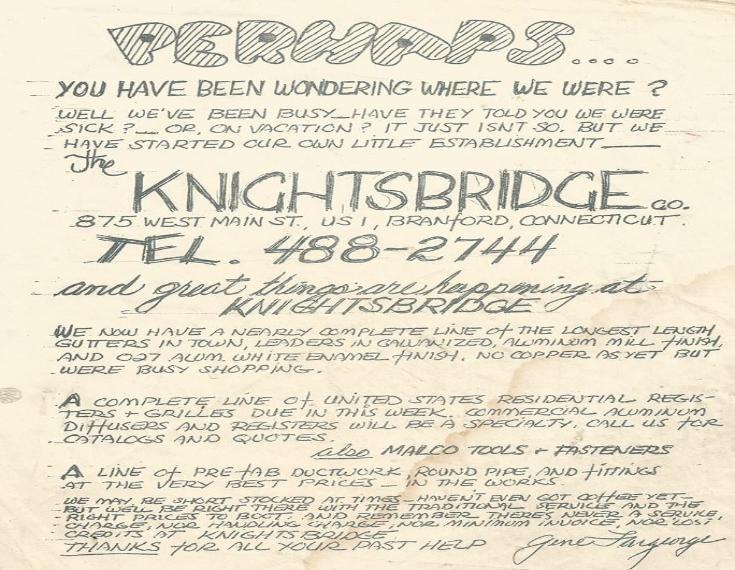 PERHAPS....
YOU HAVE BEEN WONDERING WHERE WE WERE ?
WELL WE'VE BEEN BUSY_HAVE THEY TOLD YOU WE WERE
SICK ?_ OR, ON VACATION ? IT JUST ISNT SO. BUT WE
HAVE STARTED OUR OWN LITTLE ESTABLISHMENT____
The
KNIGHTSBRIDGE CO.
875 WEST MAIN ST., US 1, BRANFORD, CONNECTICUT.
TEL. 488-2744
and great things are happening at
KNIGHTSBRIDGE
WE NOW HAVE A NEARLY COMPLETE LINE of THE LONGEST LENGTH
GUTTERS IN TOWN, LEADERS IN GALVANIZED, ALUMINUM MILL FINISH,
AND 027 ALUM. WHITE ENAMEL FINISH. NO COPPER AS YET BUT
WERE BUSY SHOPPING.
A COMPLETE LINE of UNITED STATES RESIDENTIAL REGIS-
TERS + GRILLES DUE IN THIS WEEK. COMMERCIAL ALUMINUM
DIFFUSERS AND REGISTERS WILL BE A SPECIALTY, CALL US FOR
CATALOGS AND QUOTES.
also MALCO TOOLS + FASTENERS
A LINE of PRE FAB DUCTWORK, ROUND PIPE, AND FITTINGS
AT THE VERY BEST PRICES — IN THE WORKS.
WE MAY BE SHORT STOCKED AT TIMES - HAVEN'T EVEN GOT COFFEE YET-
BUT WE'LL BE RIGHT THERE WITH THE TRADITIONAL SERVICE AND THE
RIGHT PRICES TO BOOT. AND REMEMBER THERES NEVER A SERVICE,
CHARGE, NOR HANDLING CHARGE, NOR MINIMUM INVOICE, NOR LOST
CREDITS AT KNIGHTSBRIDGE
THANKS FOR ALL YOUR PAST HELP Gene